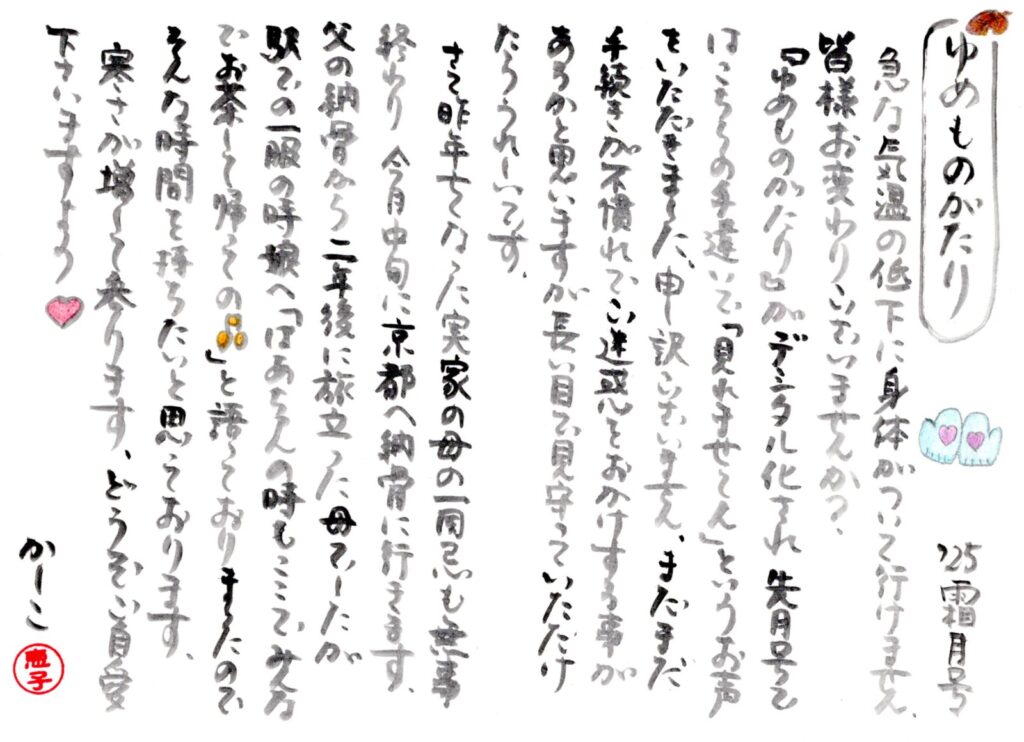 ゆめものがたり
'25 霜月号
急な気温の低下に身体がついて行けません、
皆様お変わりございませんか?
『ゆめものがたり』がデジタル化され 先月号で
はこちらの手違いで「見れませ〜ん」というお声
をいただきました、申し訳ございません、まだまだ
手続きが不慣れでご迷惑をおかけする事が
あるかと思いますが長い目で見守っていただけ
たらうれしいです、
さて昨年亡くなった実家の母の一周忌も無事
終わり 今月中旬に京都へ納骨に行きます、
父の納骨から二年後に旅立った母でしたが
駅での一服の時娘へ「ばあちゃんの時もここでみんな
でお茶して帰っての」と語っておりましたので
そんな時間を持ちたいと思っております、
寒さが増して参ります、どうぞご自愛
下さいますよう
かーこ
恵子